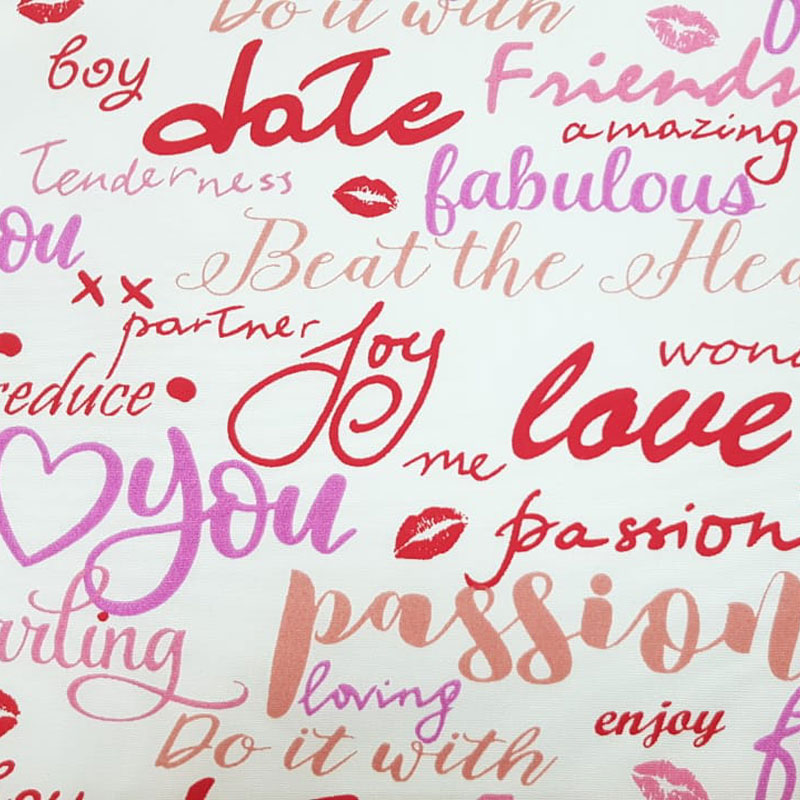 Do it with
boy
date
Friends
amazing
Tenderness
fabulous
ou
Beat the Hea
xx
partner
Joy
wond
reduce
love
me
you
passion
arling
passion
loving
enjoy
Do it with